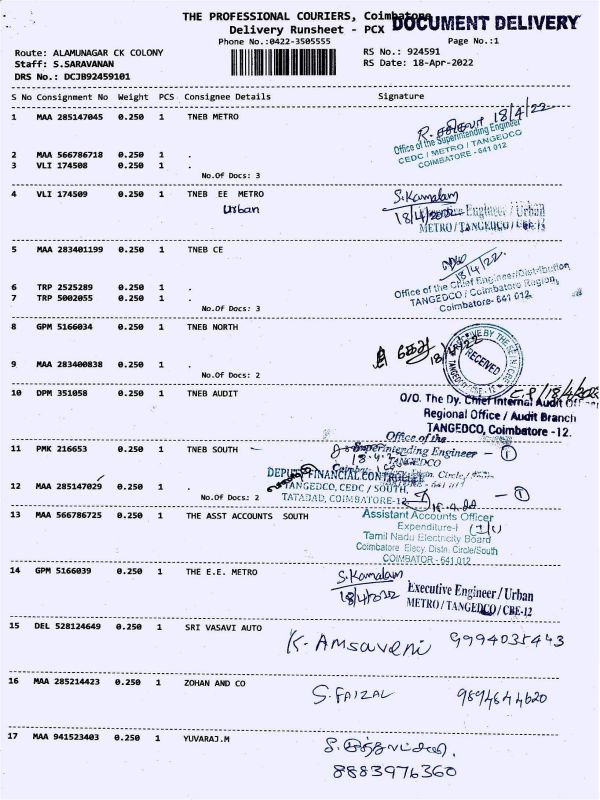 THE PROFESSIONAL COURIERS, Coimbatore
DOCUMENT DELIVERY
Delivery Runsheet - PCX
Phone No.:0422-3505555
Page No.:1
Route: ALAMUNAGAR CK COLONY
RS No.: 924591
Staff: S.SARAVANAN
RS Date: 18-Apr-2022
DRS No.: DCJB92459101
S No Consignment No Weight PCS Consignee Details Signature
1 MAA 285147045 0.250 1 TNEB METRO
18/4/22
Office of the Superintending Engineer
CEDC / METRO / TANGEDCO
COIMBATORE - 641 012
2 MAA 566786718 0.250 1 .
3 VLI 174508 0.250 1 .
No.Of Docs: 3
4 VLI 174509 0.250 1 TNEB EE METRO
Urban
S.Kamalam
18/4/2022
Engineer / Urban
METRO/TANGEDCO/CBE-12
5 MAA 283401199 0.250 1 TNEB CE
18/4/22.
Office of the Chief Engineer/Distribution
TANGEDCO / Coimbatore Region,
Coimbatore- 641 012.
6 TRP 2525289 0.250 1 .
7 TRP 5002055 0.250 1 .
No.Of Docs: 3
8 GPM 5166034 0.250 1 TNEB NORTH
RECEIVED
9 MAA 283400838 0.250 1 .
No.Of Docs: 2
10 DPM 351058 0.250 1 TNEB AUDIT
O/O. The Dy. Chief Internal Audit
Regional Office / Audit Branch
TANGEDCO, Coimbatore -12.
11 PMK 216653 0.250 1 TNEB SOUTH
Office of the
Superintending Engineer - 1
TANGEDCO
12 MAA 285147029 0.250 1 .
No.Of Docs: 2
DEPUTY FINANCIAL CONTROLLER
TANGEDCO, CEDC / SOUTH,
TATABAD, COIMBATORE-12
13 MAA 566786725 0.250 1 THE ASST ACCOUNTS SOUTH
Assistant Accounts Officer
Expenditure-I
Tamil Nadu Electricity Board
Coimbatore Elecy. Distn. Circle/South
COIMBATOR - 641 012
14 GPM 5166039 0.250 1 THE E.E. METRO
S.Kamalam
18/4/2022
Executive Engineer / Urban
METRO/TANGEDCO/CBE-12
15 DEL 528124649 0.250 1 SRI VASAVI AUTO
K. Amsaveni 9994035443
16 MAA 285214423 0.250 1 ZOHAN AND CO
S.FAIZAL 9894644620
17 MAA 941523403 0.250 1 YUVARAJ.M
8883976360